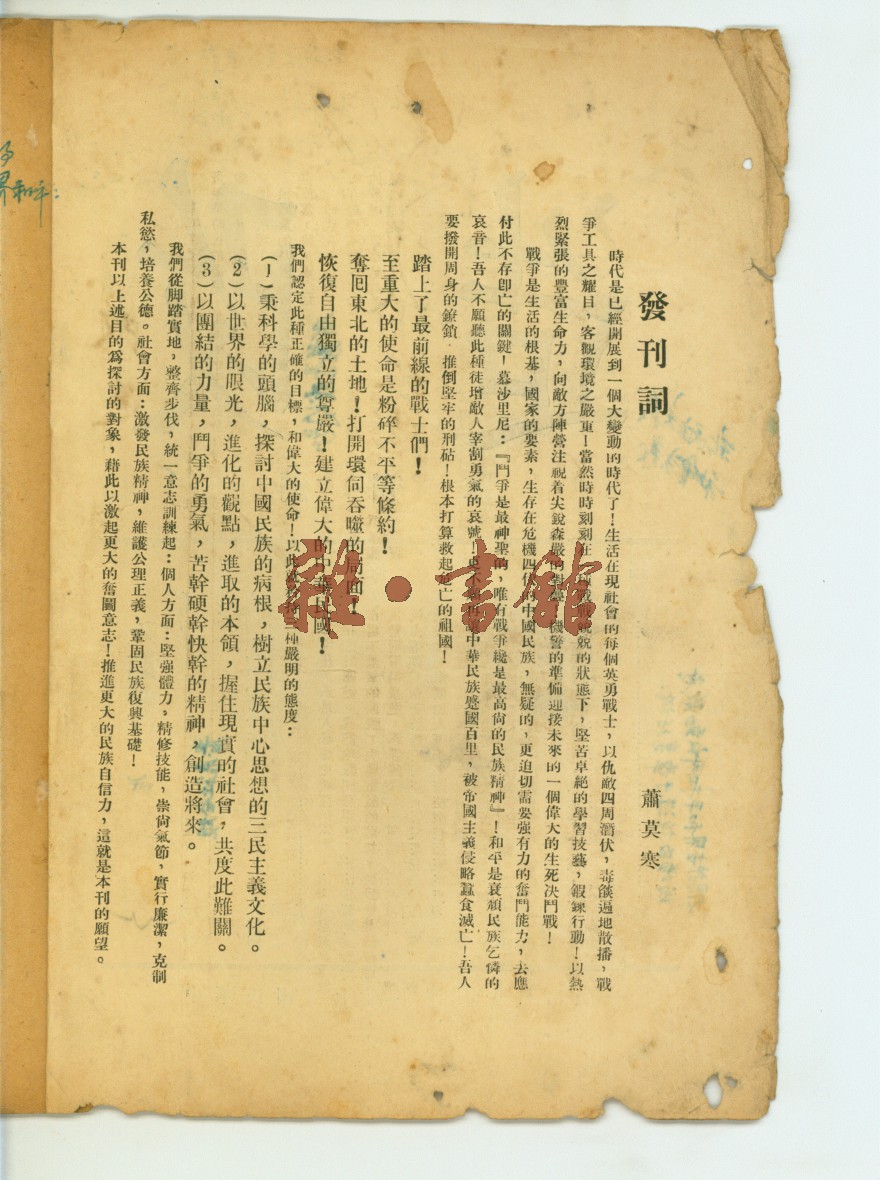 發刊詞
蕭莫寒
時代是已經開展到一個大變動的時代了！生活在現社會的每個英勇戰士，以仇敵四周潛伏，毒燄遍地散播，戰
爭工具之耀目，客觀環境之嚴重！當然時時刻刻在的狀態下，堅苦卓絕的學習技藝，鍛鍊行動！以熱
烈緊張的豐富生命力，向敵方陣營注視着尖銳森嚴的機警的準備迎接未來的一個偉大的生死決鬥戰！
戰爭是生活的根基，國家的要素，生存在危機四伏的中國民族，無疑的，更迫切需要強有力的奮鬥能力，去應
付此不存卽亡的關鍵！慕沙里尼：『鬥爭是最神聖的，唯有戰爭纔是最高尙的民族精神』！和平是衰頹民族乞憐的
哀音！吾人不願聽此種徒增敵人宰割勇氣的哀號！中華民族蹙國百里，被帝國主義侵略蠶食滅亡！吾人
要撥開周身的鐐鎖．推倒堅牢的刑砧！根本打算救起危亡的祖國！
踏上了最前線的戰士們！
至重大的使命是粉碎不平等條約！
奪回東北的土地！打開環伺吞噬的局面！
恢復自由獨立的尊嚴！建立偉大的中華民國！
我們認定此種正確的目標，和偉大的使命！以此種嚴明的態度：
(1)秉科學的頭腦，探討中國民族的病根，樹立民族中心思想的三民主義文化。
(2)以世界的眼光，進化的觀點，進取的本領，握住現實的社會，共度此難關。
(3)以團結的力量，鬥爭的勇氣，苦幹硬幹快幹的精神，創造將來。
我們從脚踏實地，整齊步伐，統一意志訓練起：個人方面：堅強體力，精修技能，崇尙氣節，實行廉潔，克制
私慾，培養公德。社會方面：激發民族精神，維護公理正義，鞏固民族復興基礎！
本刊以上述目的爲探討的對象，藉此以激起更大的奮鬭意志！推進更大的民族自信力，這就是本刊的願望。
雅·書館